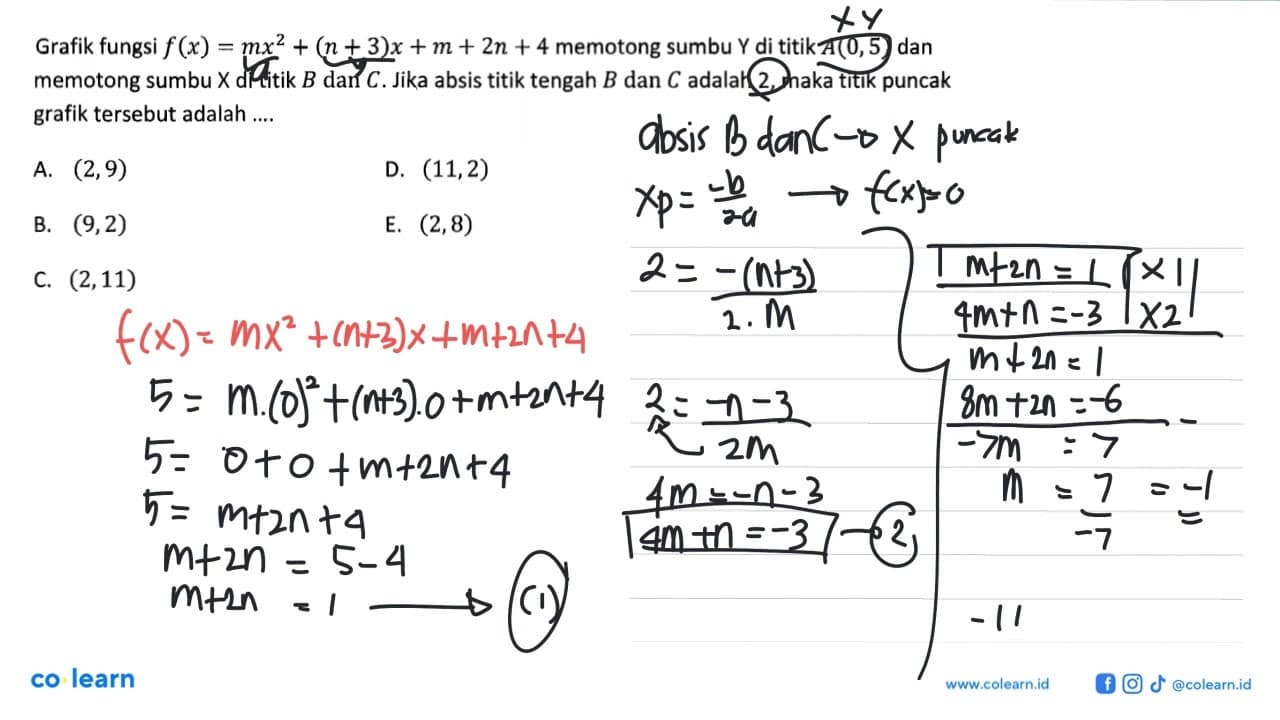 x y
Grafik fungsi f(x) = mx² + (n + 3)x + m + 2n + 4 memotong sumbu Y di titik A(0, 5) dan
memotong sumbu X di titik B dan C. Jika absis titik tengah B dan C adalah 2, maka titik puncak
grafik tersebut adalah ....
A. (2, 9)
B. (9, 2)
C. (2, 11)
D. (11, 2)
E. (2, 8)
f(x) = mx² + (n+3)x + m+2n+4
5 = m.(0)² + (n+3).0 + m+2n+4
5 = 0 + 0 + m+2n+4
5 = m+2n+4
m+2n = 5-4
m+2n = 1 → (1)
absis B dan C → x puncak
xp = -b/2a → f(x)=0
2 = -(n+3)/2.m
2 = -n-3/2m
4m = -n-3
4m+n = -3 → 2
m+2n = 1 | x1 |
4m+n = -3 | x2 |
m+2n = 1
8m+2n = -6 -
-7m = 7
m = 7/-7 = -1
-11
co learn
www.colearn.id
@colearn.id